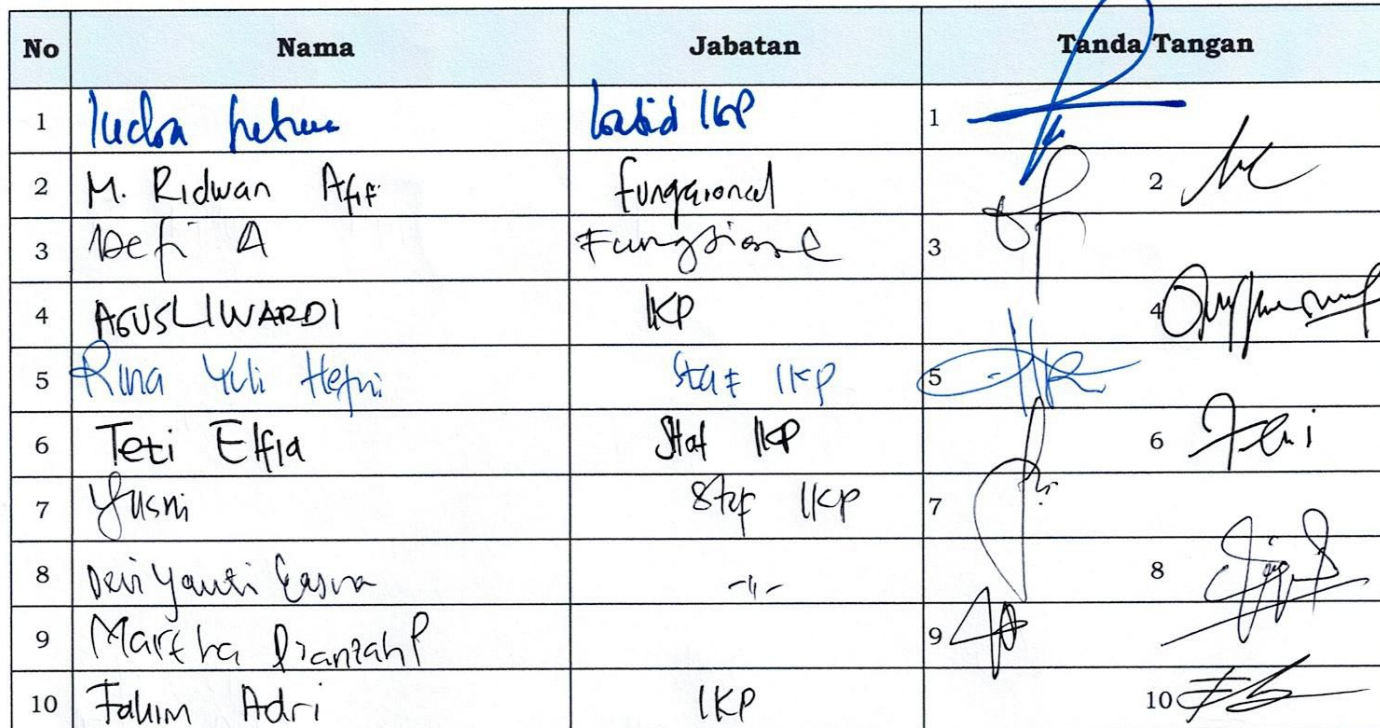 No Nama Jabatan Tanda Tangan
1 Kabid IKP 1
2 M. Ridwan Afif Fungsional 2
3 Defi A Fungsional 3
4 AGUSLIWARDI IKP 4
5 Rina Yuli Hefni Staf IKP 5
6 Teti Elfia Staf IKP 6
7 Yusni Staf IKP 7
8 Devi Yanti -"- 8
9 Martha 9
10 Fahim Adri IKP 10